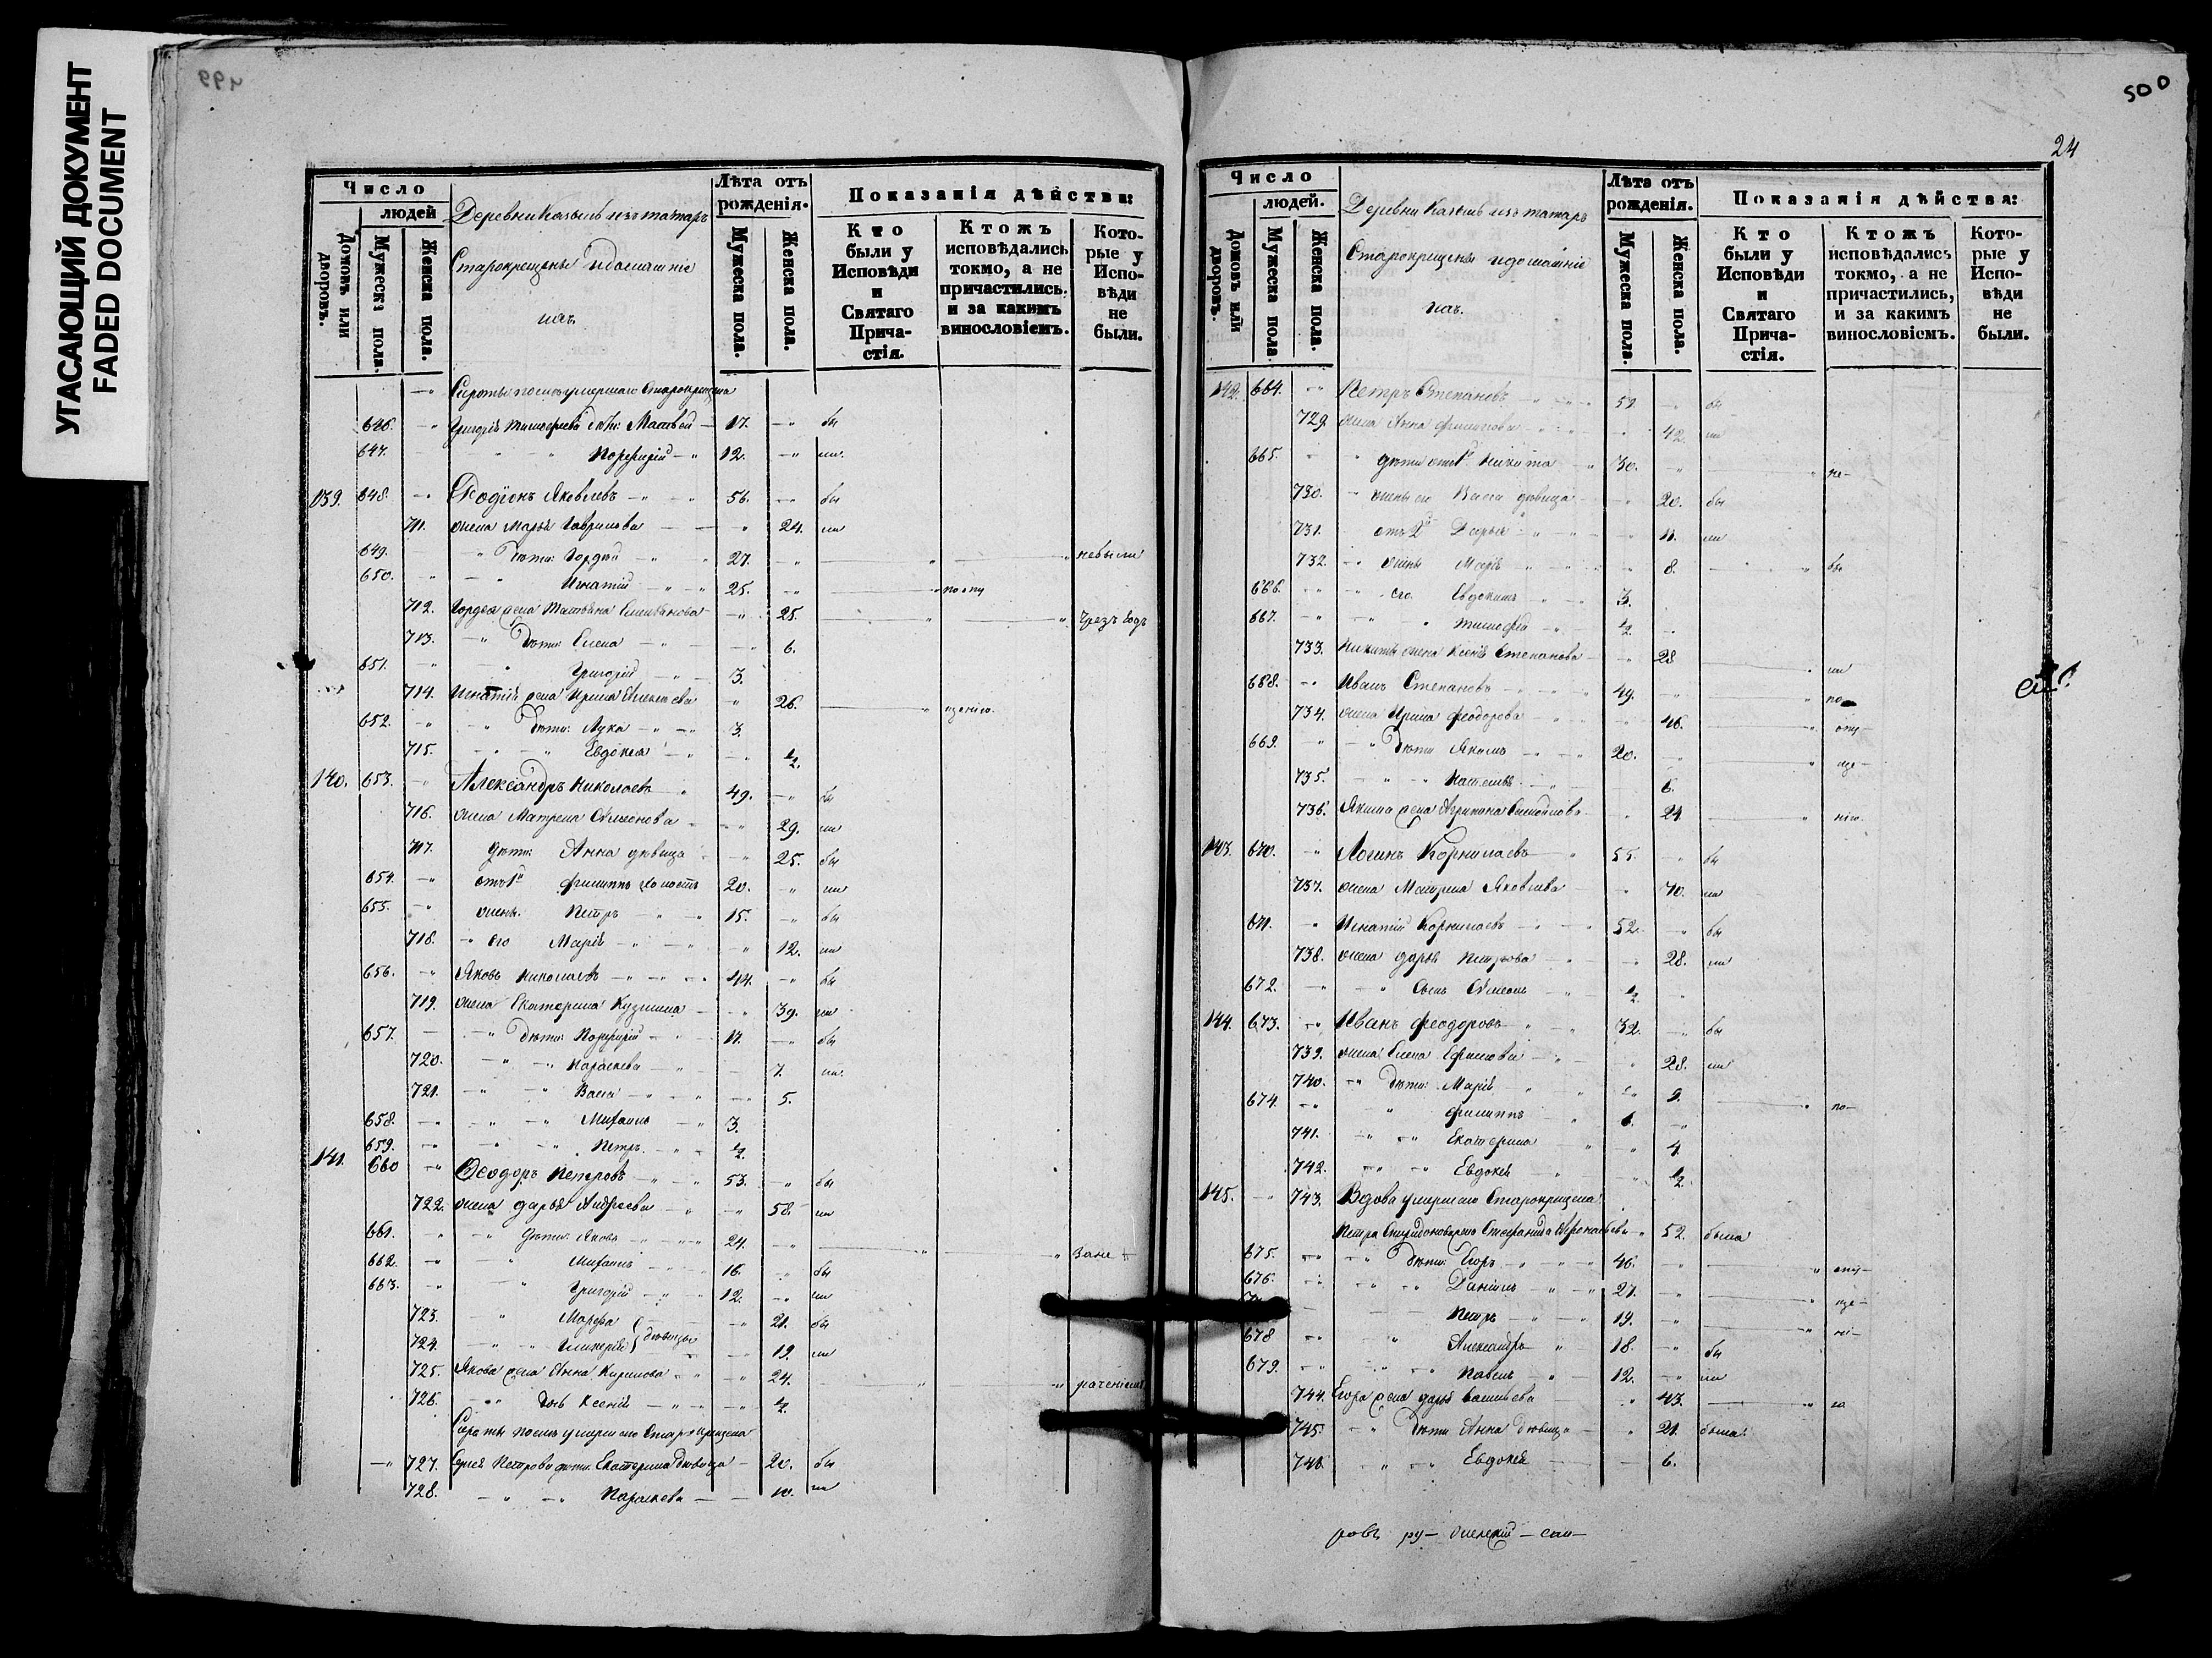 УГАСАЮЩИЙ ДОКУМЕНТ
FADED DOCUMENT
499
Число
людей
Домовъ или дворовъ.
Мужеска пола.
Женска пола.
Деревни изъ татаръ
Старокрещены и домашніе
ихъ
Лѣта отъ рожденія.
Мужеска пола.
Женска пола.
Показанія дѣйства:
Кто были у Исповѣди и Святаго Прича-стія.
Ктожъ исповѣдались токмо, а не причастились, и за какимъ винословіемъ.
Кото-рые у Испо-вѣди не были.
Сироты послѣ умершаго Старокрещена
646. Григорія Тимофеева дѣти: Матвей 17. бы
647. Порфирій 12. ли
139. 648. Родіонъ Яковлевъ 56. бы
711. жена Марья Гаврилова 24. ли
649. дѣти: Гордѣй 27. небыли
650. Игнатій 25. по опу
712. Гордея жена Татьяна 25. чрезъ годъ
713. дѣти: Елена 6.
651. Григорій 3.
714. Игнатія жена Ирина Алексѣева 26. щенію
652. дѣти: Лука 3.
715. Евдокея ½
140. 653. Александръ Николаевъ 49. бы
716. жена Матрена Сѵмеонова 29. ли
717. дѣти: Анна дѣвица 25. бы
654. отъ 1й Филиппъ холостъ 20. ли
655. жены Петръ 15. бы
718. его Марія 12. ли
656. Яковъ Николаевъ 44. бы
719. жена Екатерина Кузмина 39. ли
657. дѣти: Порфирій 11. бы
720. Параскева 7. ли
721. Васса 5.
658. Михаилъ 3.
659. Петръ ½
141. 660 Ѳеодоръ Петровъ 53. бы
722. жена Дарья Андреева 58. ли
661. дѣти: Яковъ 24. за не
662. Михаилъ 16. бы
663. Григорій 12. ли
723. Марфа 21. бы
724. Гликерія } дѣвицы 19. ли
725. Якова жена Анна Кирилова 24. раченіемъ
726. дочь Ксенія ½
Сироты послѣ умершаго Старокрещена
727. Сергея Петрова дѣти: Екатерина дѣвица 20. бы
728. Параскева 10. ли
500
24
Число
людей.
Домовъ или дворовъ.
Мужеска пола
Женска пола.
Деревни изъ татаръ
Старокрещены и домашніе
ихъ.
Лѣта отъ рожденія.
Мужеска пола.
Женска пола.
Показанія дѣйства:
Кто были у Исповѣди и Святаго Прича-стія.
Ктожъ исповѣдались токмо, а не причастились, и за какимъ винословіемъ.
Кото-рые у Испо-вѣди не были.
142. 664. Петръ Степановъ 52. бы
729. жена Анна Филипова 42. ли
665. дѣти отъ 1й Никита 30. не
730. жены его Васса дѣвица 20. бы
731. отъ 2й Дарья 11. ли
732. жены Марія 8. бы
666. его Евдокимъ 3.
667. Тимофей ½
733. Никиты жена Ксенія Степанова 28 ли
668. Иванъ Степановъ 49. по
734. жена Ирина Феодорова 46. опу
669. дѣти Якимъ 20. ще
735. Наталья 6.
736. Якима жена 21 нію
143. 670. Логинъ Корнилаевъ 55. бы
737. жена Матрена Яковлева 40. ли
671. Игнатій Корнилаевъ 52. бы
738. жена Дарья Петрова 28. ли
672. сынъ Сѵмеонъ ½
144. 673. Иванъ Феодоровъ 32. бы
739. жена Елена Ефимова 28. ли
740. дѣти: Марія 9. по
674. Филиппъ 6.
741. Екатерина 4.
742. Евдокея ½
145. 743. Вдова умершаго Старокрещена
Петра Стефанида 52. была
675. дѣти: Егоръ 46. опу
676. Даніилъ 21. ще
Петръ 19. ні
678 Александръ 18. бы
679. Павелъ 12. ли
744. Егора жена Дарья Васильева 43.
745. дѣти Анна дѣвица 21. была
746. Евдокея 6.